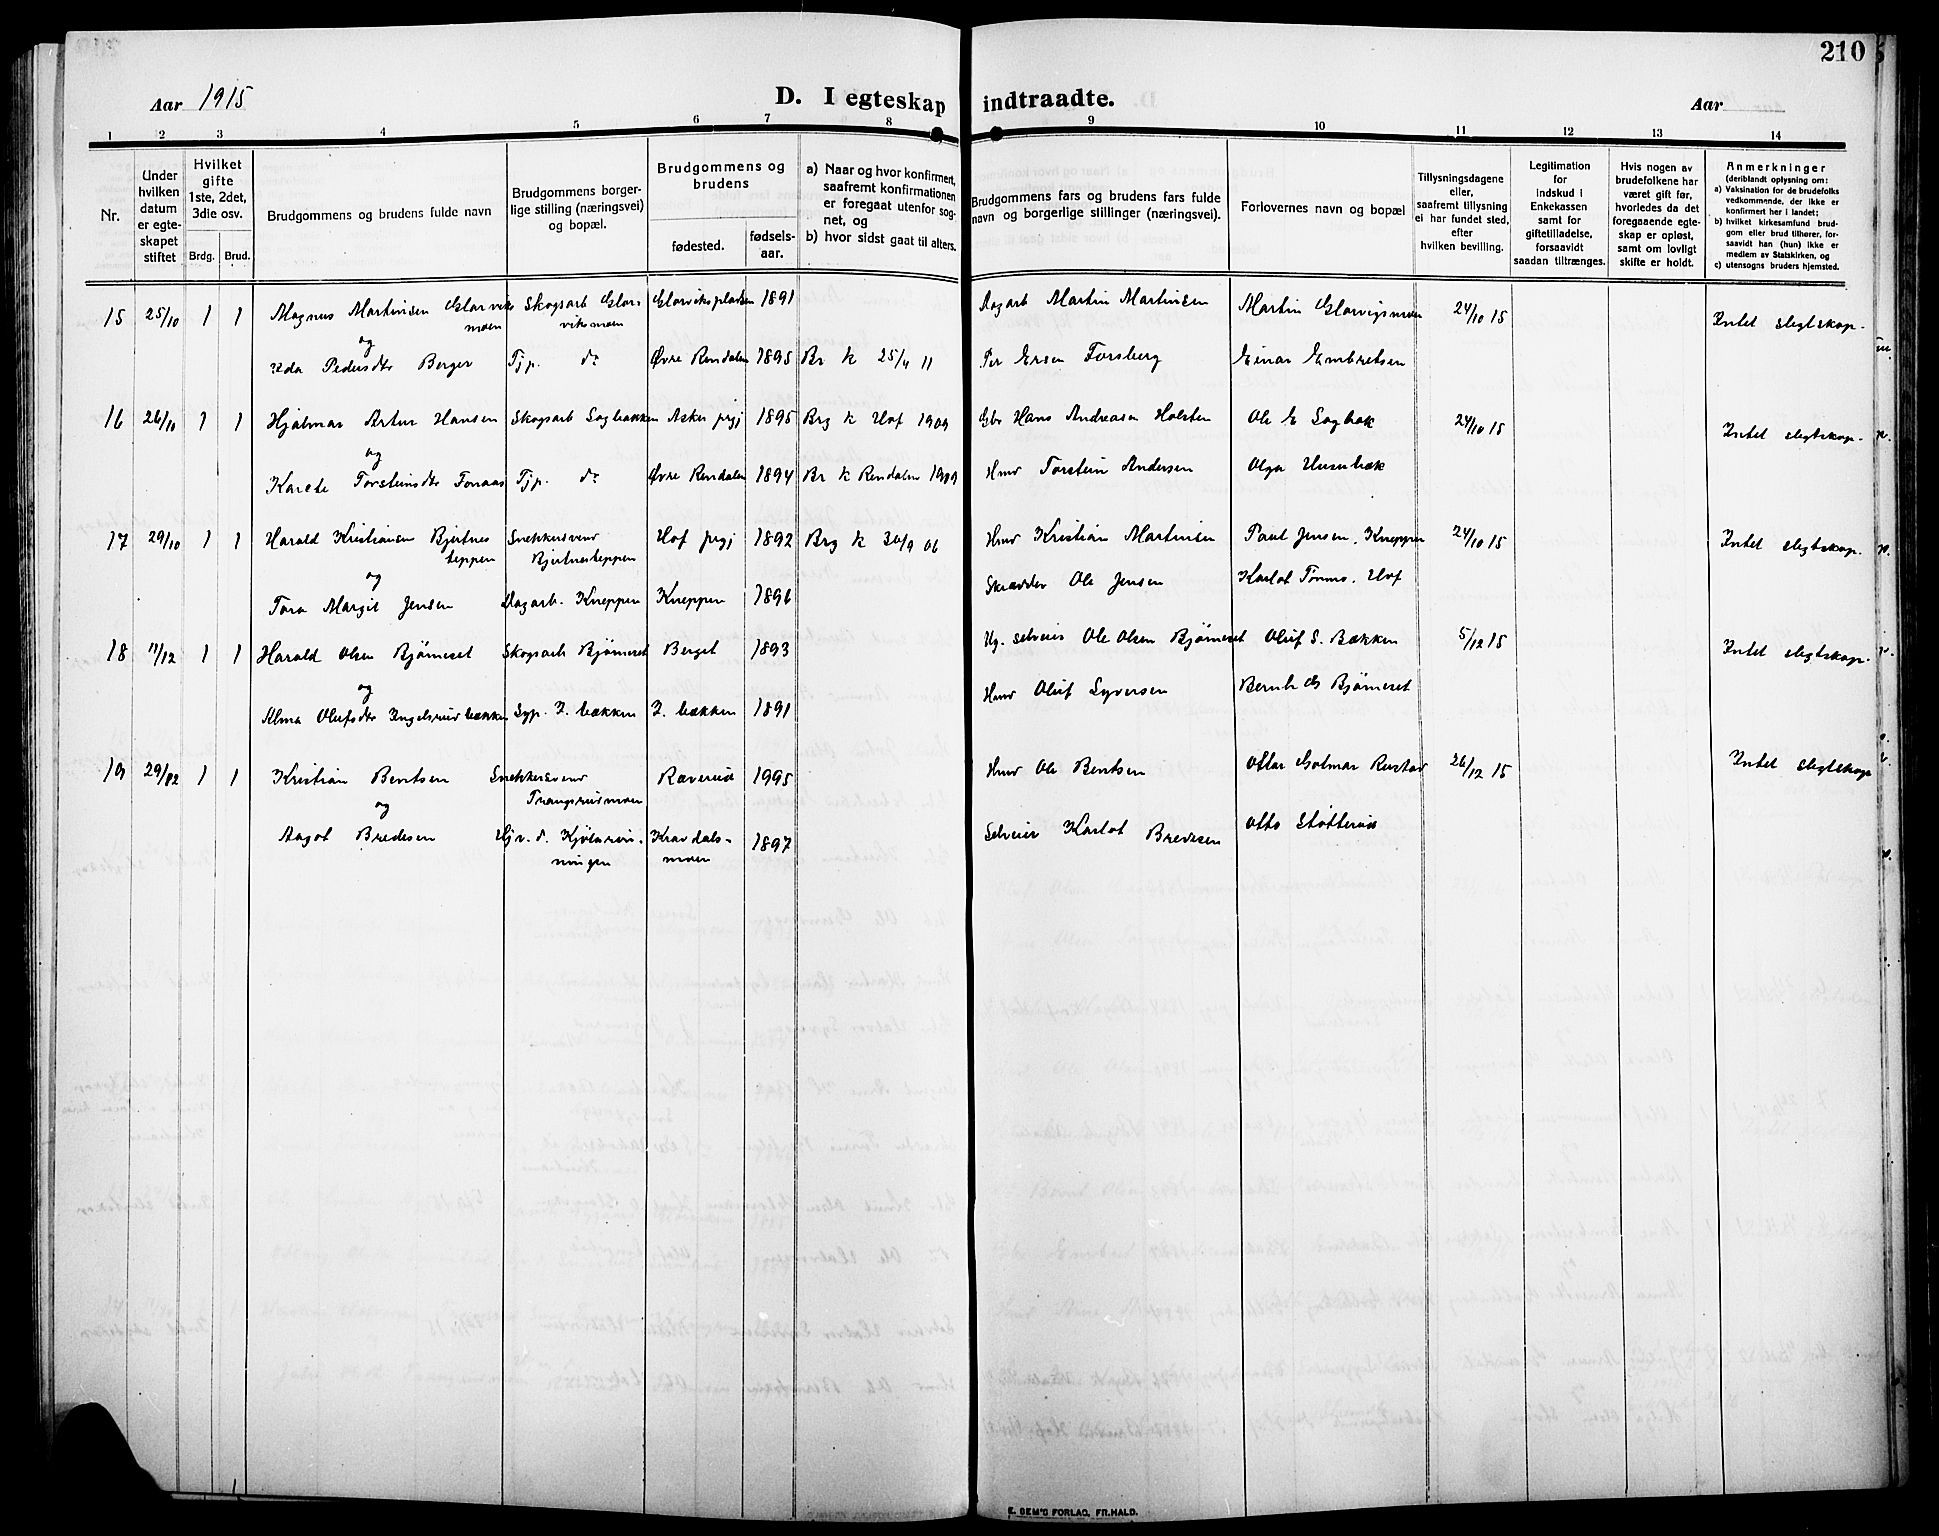 210
Aar 1915
D. I egteskap indtraadte.
Aar
1 2 3 4 5 6 7 8 9 10 11 12 13 14
Nr.
Under hvilken datum er egte-skapet stiftet
Hvilket gifte 1ste, 2det, 3die osv.
Brdg. Brud.
Brudgommens og brudens fulde navn
Brudgommens borger-lige stilling (næringsvei) og bopæl.
Brudgommens og brudens
fødested.
fødsels-aar.
a) Naar og hvor konfirmert, saafremt konfirmationen er foregaat utenfor sog-net, og
b) hvor sidst gaat til alters.
Brudgommens fars og brudens fars fulde navn og borgerlige stillinger (næringsvei).
Forlovernes navn og bopæl
Tillysningsdagene eller, saafremt tillysning ei har fundet sted, efter hvilken bevilling.
Legitimation for indskud i Enkekassen samt for giftetilladelse, forsaavidt saadan tiltrænges.
Hvis nogen av brudefolkene har været gift før, hvorledes da det foregaaende egte-skap er opløst, samt om lovligt skifte er holdt.
Anmerkninger
(deriblandt oplysning om:
a) Vaksination for de brudefolks vedkommende, der ikke er konfirmert her i landet;
b) hvilket kirkesamfund brud-gom eller brud tilhører, for-saavidt han (hun) ikke er medlem av Statskirken, og
c) utensogns bruders hjemsted.
15 25/10 1 1 Magnus Martinsen Glorviks moen Skogsarb Glor-viksmoen Glorvikspladsen 1891 Dagarb Martin Martinsen Martin Glorvigsmoen 24/10 15 Intet slegtskap.
og
Ida Pedersdtr Berger Tjp. do Øvre Rendalen 1895 Br k 25/4 11 Per Ersen Forsberg Einar Embretsen
16 26/10 1 1 Hjalmar Artur Hansen Skogsarb Sagbakken Asker prgj 1895 Brg k Hof 1909 Gbr Hans Andreasen Holsten Ole E Sagbak 24/10 15 Intet slegtskap.
og
Karete Torsteinsdtr Fonaas Tjp. do Øvre Rendalen 1894 Br k Rendalen 1909 Hmd Torstein Andersen Olga Husubæk
17 29/10 1 1 Harald Kristiansen Bjertnes teppen Snekkersvend Bjertnesteppen Hof prgj 1892 Brg k 30/9 06 Hmd Kristian Martinsen Paul Jensen, Kneppen 24/10 15 Intet slegtskap.
og
Tora Margit Jensen Dagarb. Kneppen Kneppen 1896 Skrædder Ole Jensen Karlot Tønms. Hof
18 11/12 1 1 Harald Olsen Bjørneset Skogsarb Bjørneset Berget 1893 Hg. selveier Ole Olsen Bjørneset Oluf S. Bækken 5/12 15 Intet slegtskap.
og
Alma Olufsdtr Ingelsrudbækken Syp. I. bækken I. bækken 1891 Hmd Oluf Syversen Bernh Bjørneset
19 29/12 1 1 Kristian Bentsen Snekkersvend Trangsrudmoen Røverud 1995 Hmd Ole Bentsen Ottar Golmar Rustad 26/12 15 Intet slegtskap
og
Aagot Bredesen Kravdals-moen 1897 Selveier Karlot Bredesen Otto Støtterud
E. SEM'S FORLAG, FR.HALD.